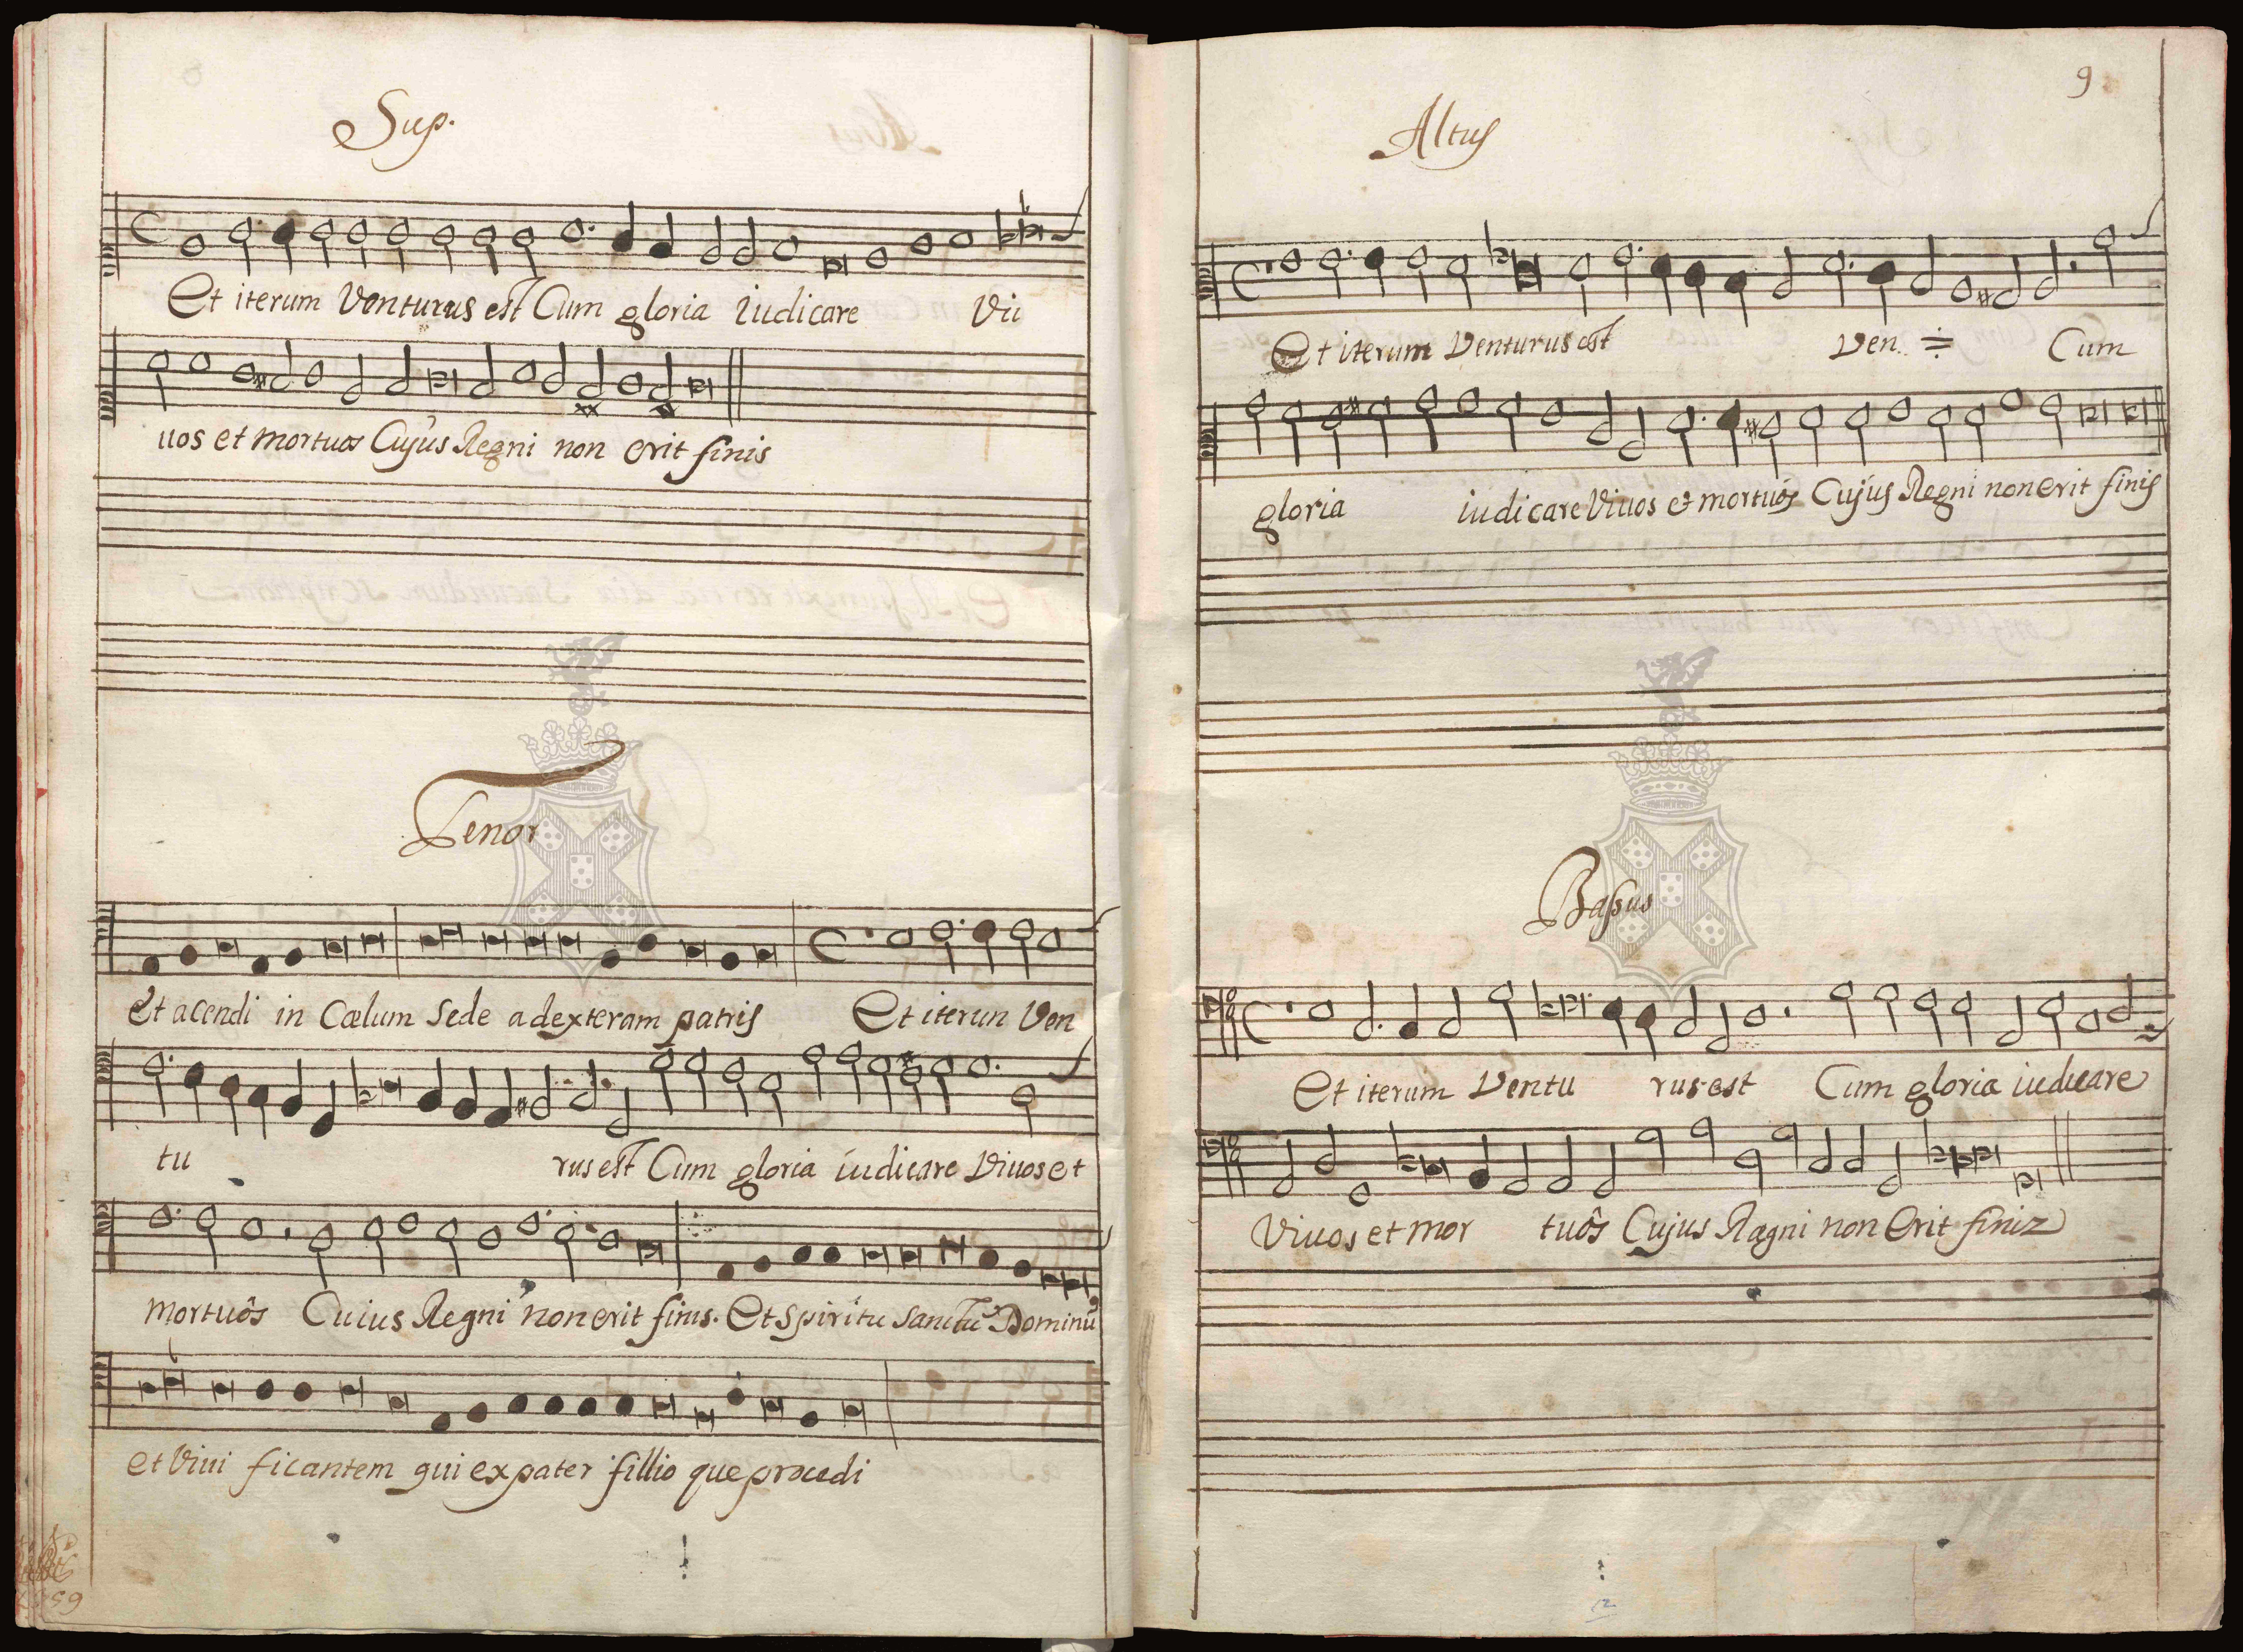 Sup.
Et iterum Venturus est Cum gloria iudicare Vi
uos et mortuos Cujus Regni non erit finis
Tenor
Et acendi in Cœlum Sede adexteram patris Et iterun Ven
tu rus est Cum gloria iudicare Viuos et
mortuôs Cuius Regni non erit finis. Et Spiritu Sanctu Dominū
et Vivi ficantem qui ex pater fillio que procedi
9
Altus
Et iterum Venturus est Ven. Cum
gloria iudicare Viuos et mortuôs Cujus Regni non erit finis
Bassus
Et iterum Ventu rus est Cum gloria iudicare
Viuos et mor tuôs Cujus Regni non Erit finiz
12